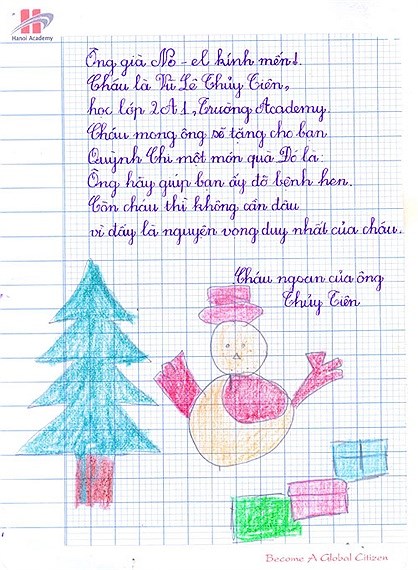 Hanoi Academy
Ông già Nô - el kính mến!.
Cháu là Vũ Lê Thủy Tiên,
học lớp 2A1, Trường Academy.
Cháu mong ông sẽ tặng cho bạn
Quỳnh Chi một món quà Đó là:
Ông hãy giúp bạn ấy đỡ bệnh hen.
Còn cháu thì không cần đâu
vì đấy là nguyện vọng duy nhất của cháu.
Cháu ngoan của ông
Thủy Tiên
Become A Global Citizen